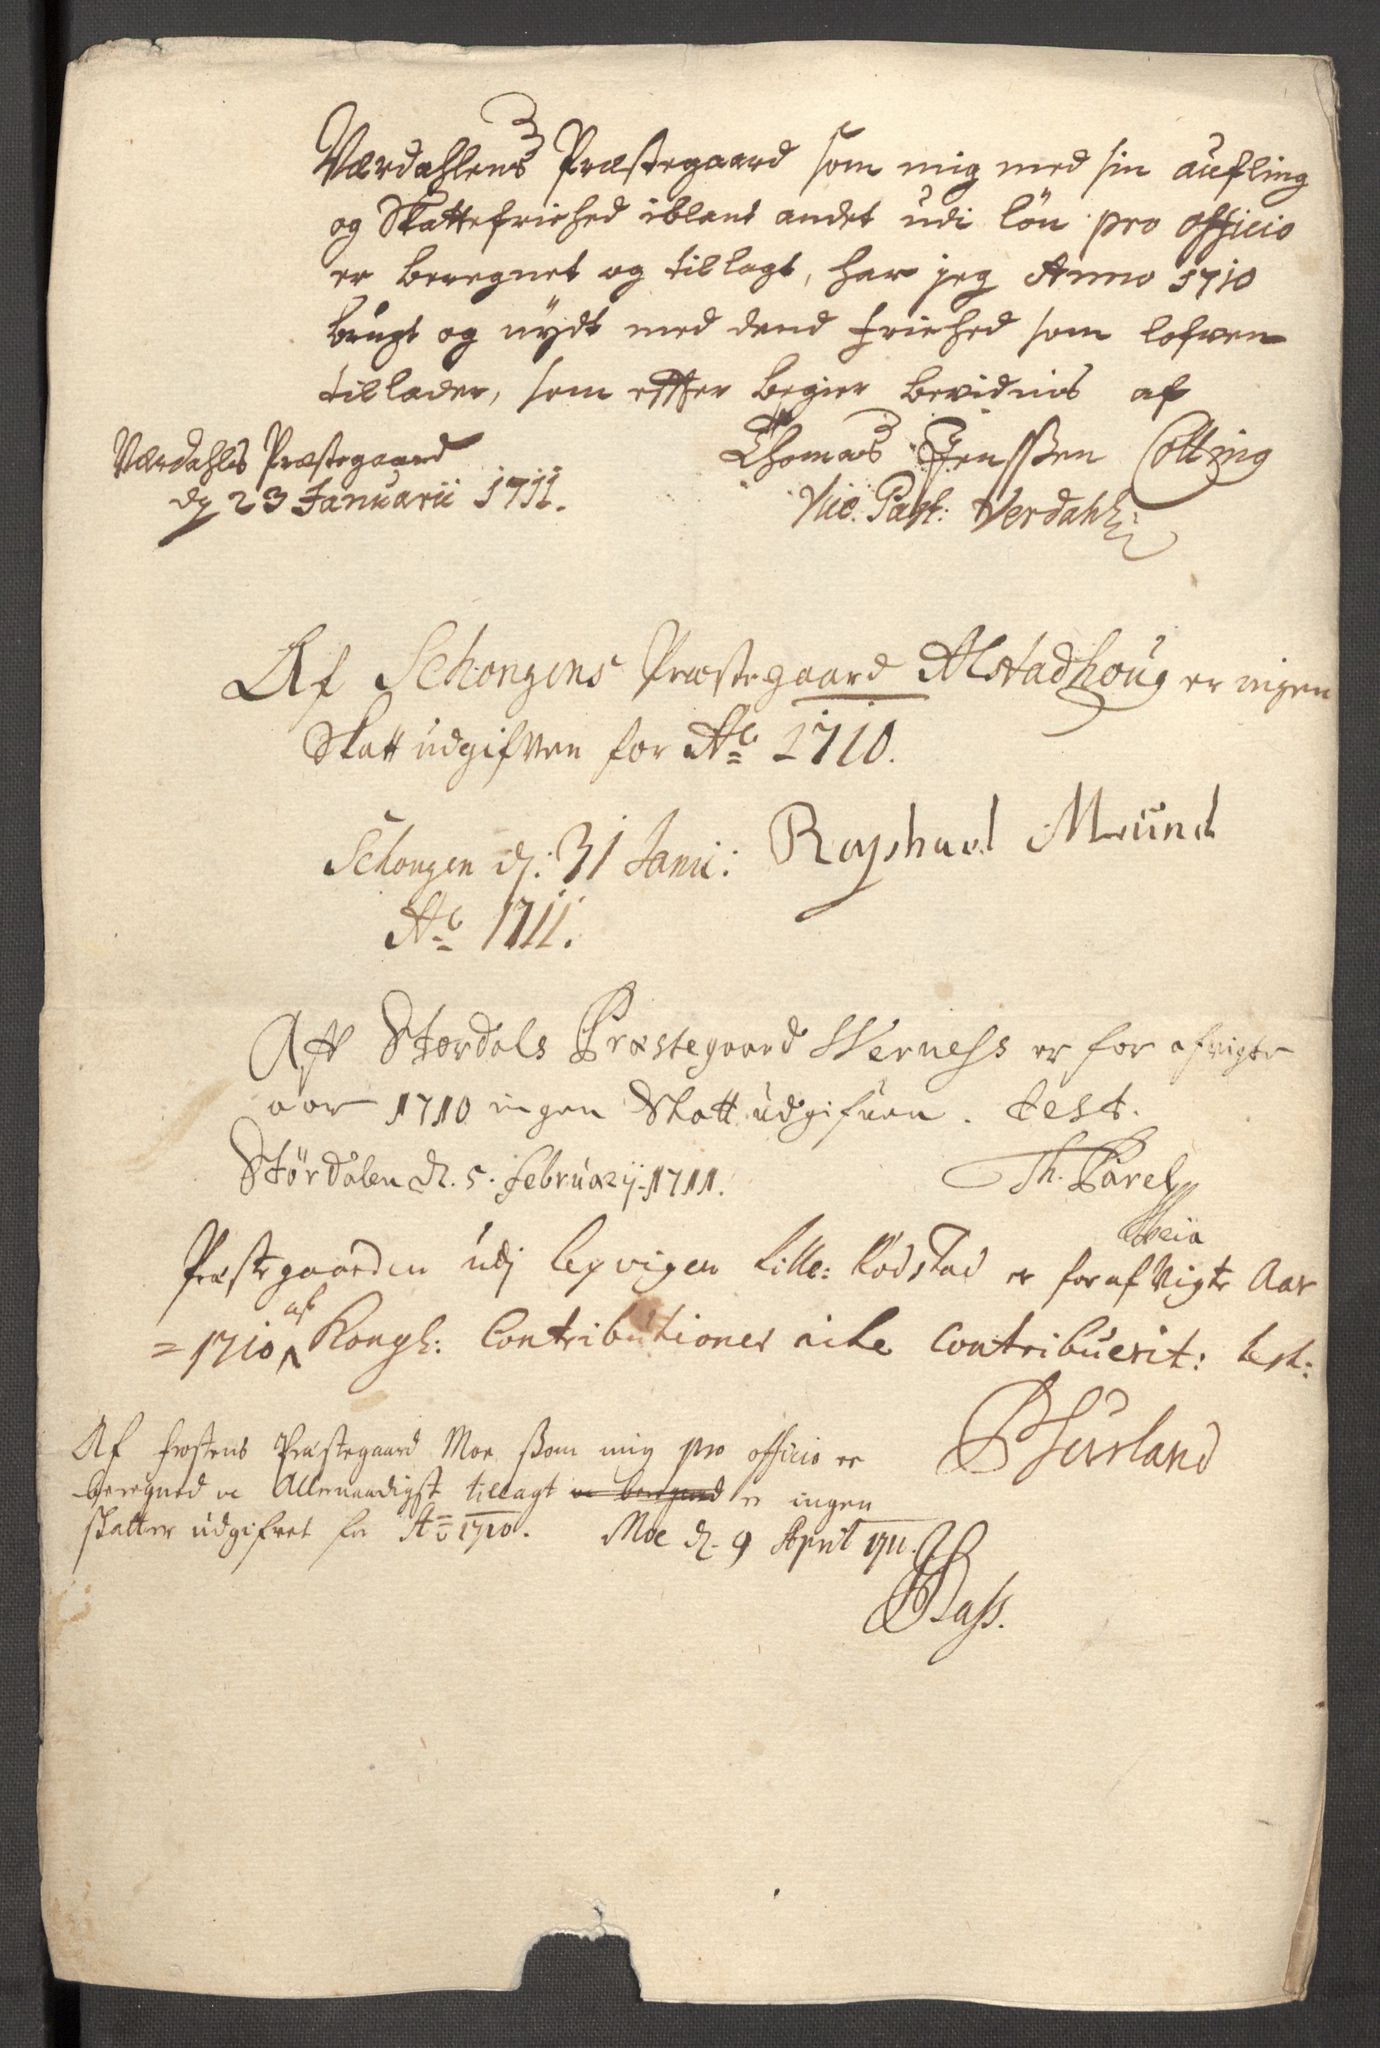 Værdahlens Præstegaard som mig med sin aufling
og Skattefriehed iblant andet udi lön pro officio
er beregnet og tillagt, har jeg Anno 1710
brugt og nydt med dend friehed som lofven
tillader, som effter begier bevidnis af
Værdahls Præstegaard
Thomas Jenssen Collying
dg 23 Januarii 1711.
Vic. Past: Verdahl:
Af Schongens Præstegaard Alstadhoug er ingen
Skatt udgifven for Ao 1710.
Schongen d: 31 Janu:
Raphael Mund
Ao 1711.
Aff Størdals Præstegaard Werness er for afvigte
aar 1710 ingen Skatt udgifuen. test.
Størdalen d. 5. februarij. 1711.
Th. Parelj
Præstegaarden udj Lexvigen Lille: Kodstad er for afvigte Aar
=1710 af Kongl: Contributioner icke Contribuerit: test:
Hurland
Af frostens Præstegaard Moe ssom mig pro officio er
beregned oc Allernaadigst tillagt oc beregned er ingen
skatter udgifvet for Ao 1710. Moe d. 9 April 1711.